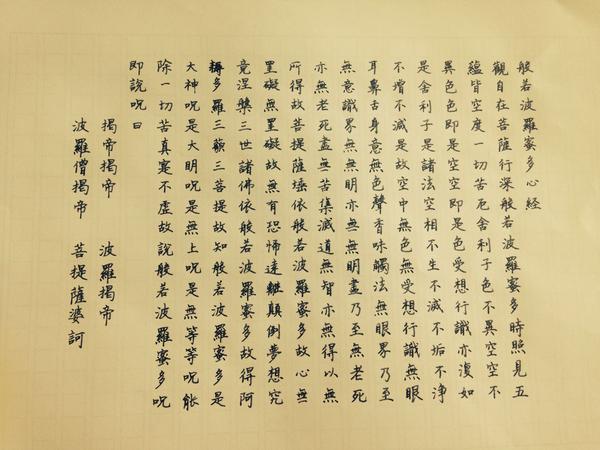 般若波羅蜜多心経
觀自在菩薩行深般若波羅蜜多時照見五
蘊皆空度一切苦厄舍利子色不異空空不
異色色即是空空即是色受想行識亦復如
是舍利子是諸法空相不生不滅不垢不淨
不增不減是故空中無色無受想行識無眼
耳鼻舌身意無色聲香味觸法無眼界乃至
無意識界無無明亦無無明盡乃至無老死
亦無老死盡無苦集滅道無智亦無得以無
所得故菩提薩埵依般若波羅蜜多故心無
罣礙無罣礙故無有恐怖遠離顛倒夢想究
竟涅槃三世諸佛依般若波羅蜜多故得阿
耨多羅三藐三菩提故知般若波羅蜜多是
大神呪是大明呪是無上呪是無等等呪能
除一切苦真寔不虚故説般若波羅蜜多呪
即説呪曰
揭帝揭帝 波羅揭帝
波羅僧揭帝 菩提薩婆訶